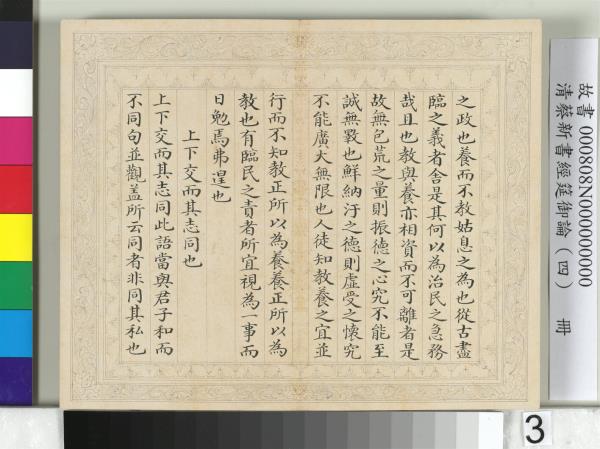 之政也養而不教姑息之為也從古盡
臨之義者舍是其何以為治民之急務
哉且也教與養亦相資而不可離者是
故無包荒之量則振德之心究不能至
誠無斁也鮮納汙之德則虛受之懷究
不能廣大無限也人徒知教養之宜並
行而不知教正所以為養養正所以為
教也有臨民之責者所宜視為一事而
日勉焉弗遑也
上下交而其志同也
上下交而其志同此語當與君子和而
不同句並觀盖所云同者非同其私也
故書 000808N000000000
清蔡新書經筵御論(四) 冊
3